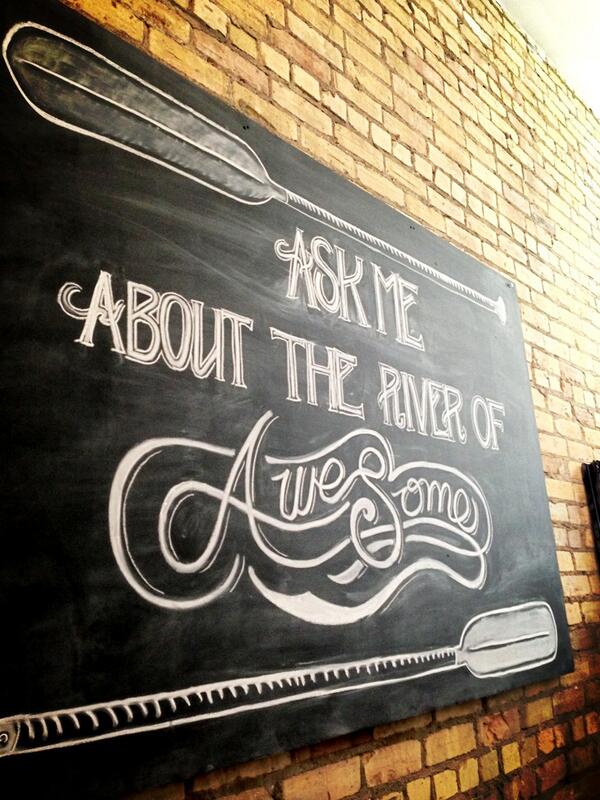 ASK ME
ABOUT THE RIVER OF
AweSome